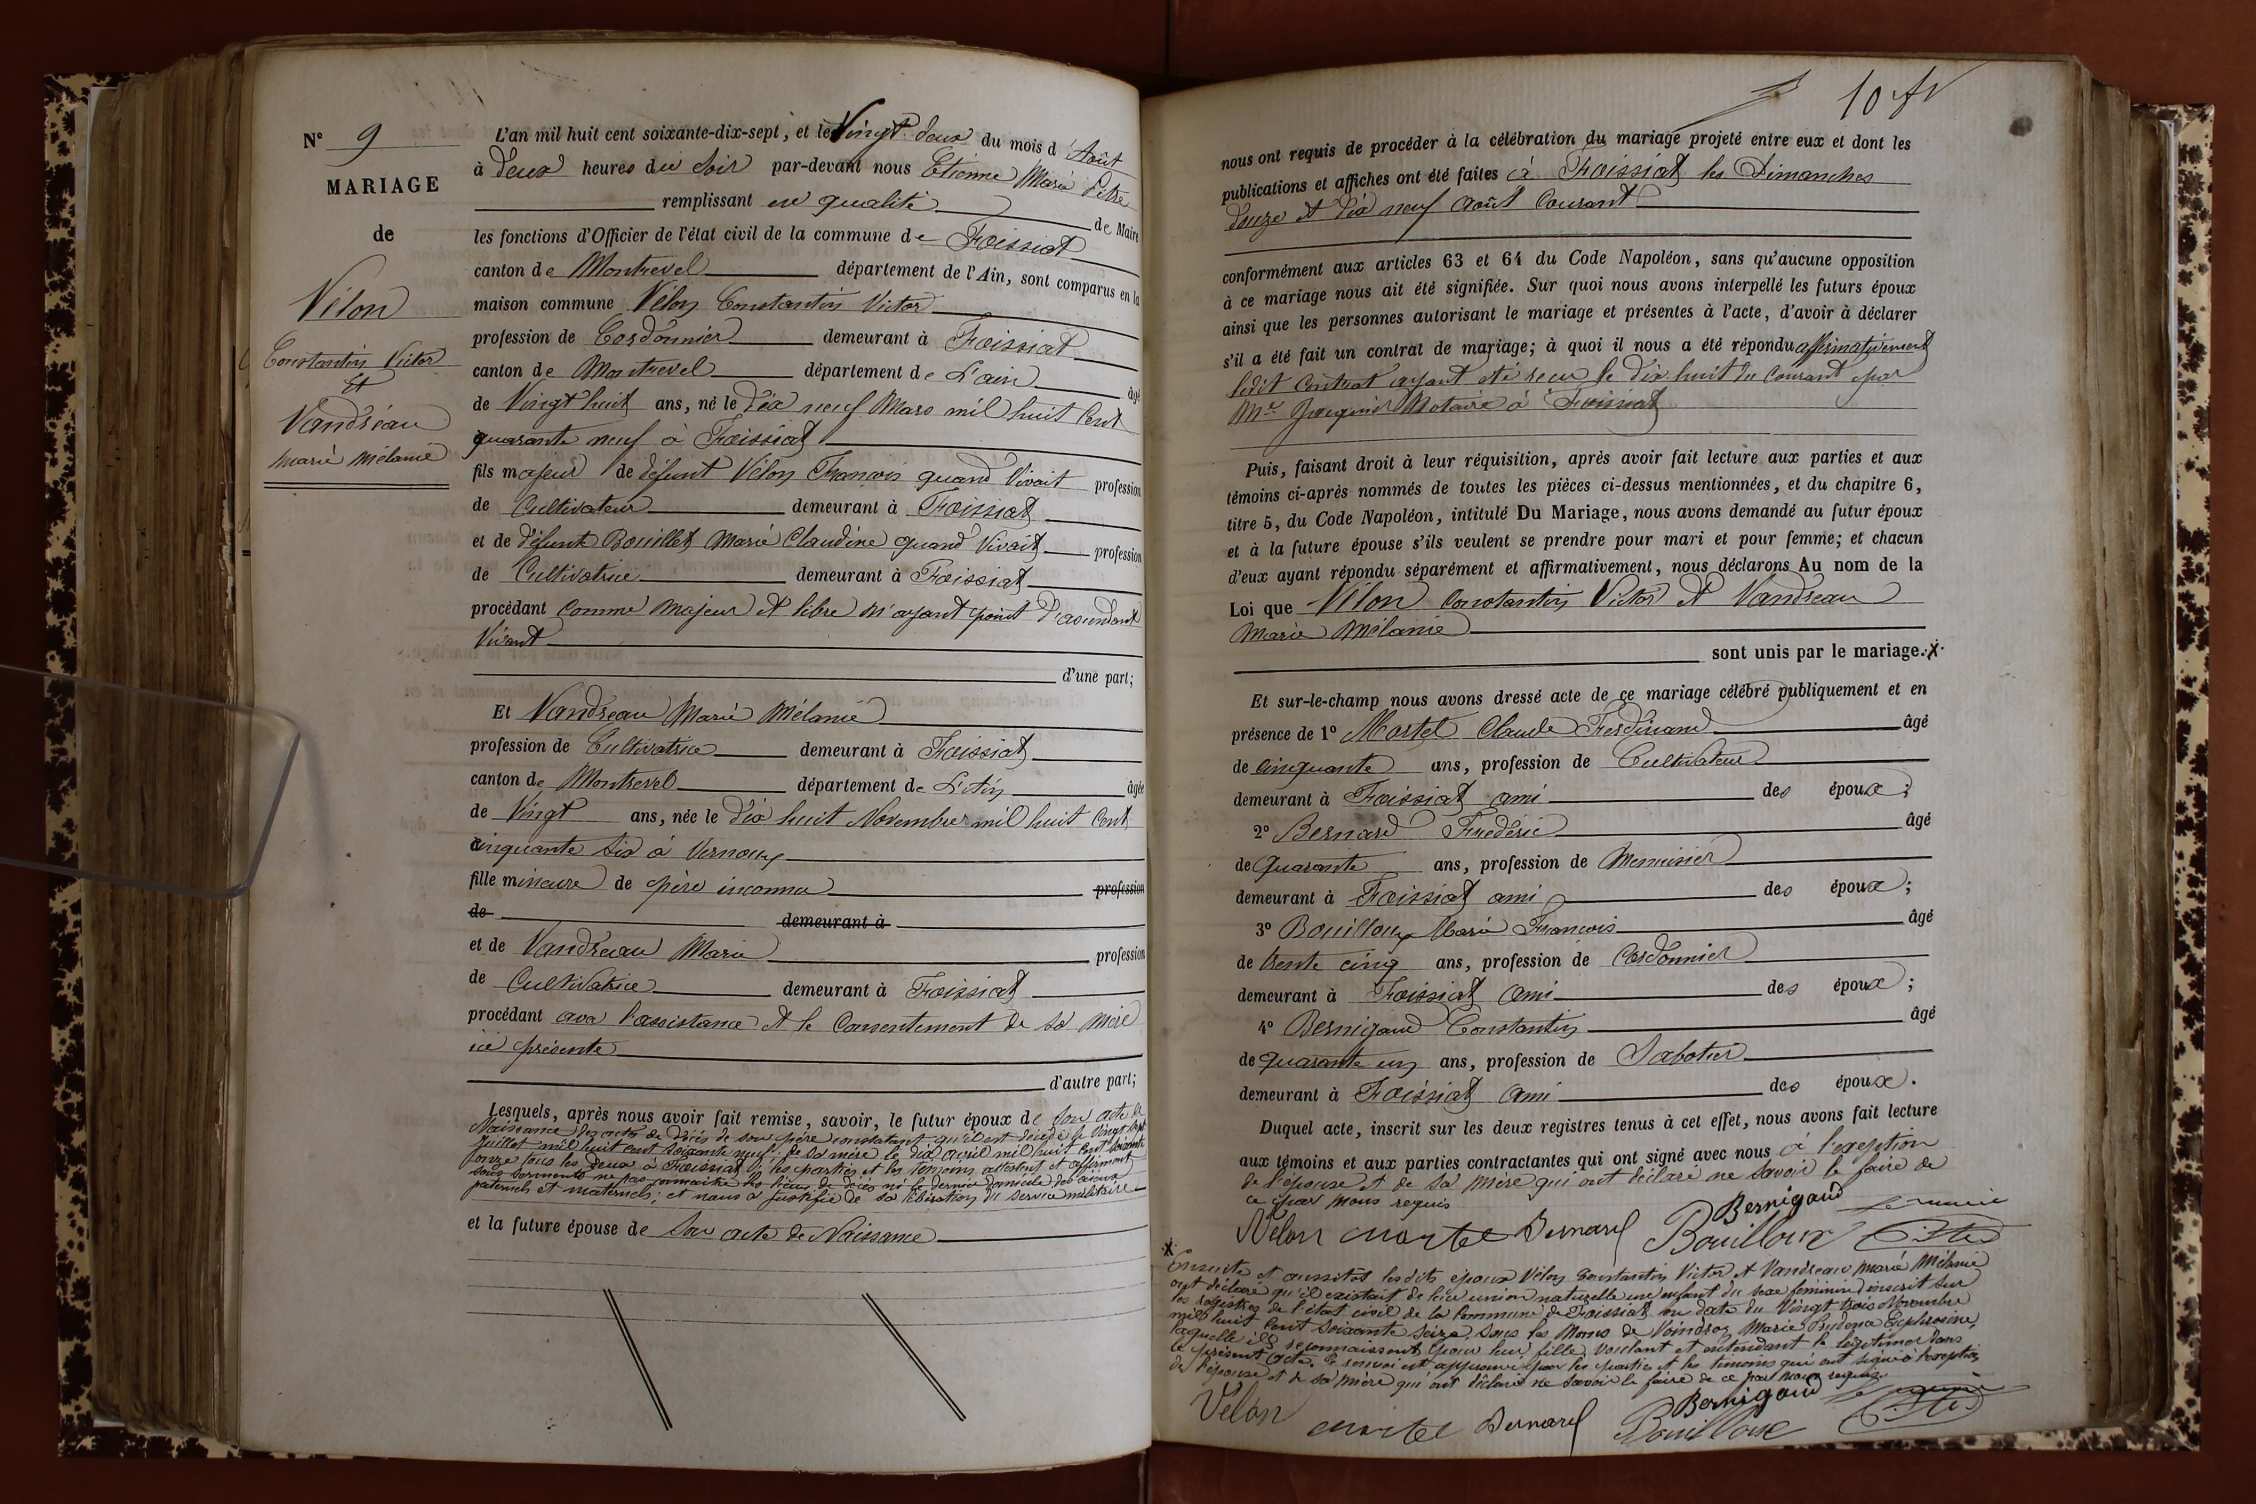 N° 9
MARIAGE
de
Vélon
Constantin Victor
et
Vandréau
marie Mélanie
L'an mil huit cent soixante-dix-sept, et le Vingt deux du mois d'Août
à deux heures du soir par-devant nous Etienne Marie Pitre
remplissant en qualité de Maire
les fonctions d'Officier de l'état civil de la commune de Foissiat
canton de Montrevel département de l'Ain, sont comparus en la
maison commune Vélon Constantin Victor
profession de Cordonnier demeurant à Foissiat
canton de Montrevel département de L'ain âgé
de Vingt huit ans, né le dix neuf Mars mil huit Cent
quarante neuf à Foissiat
fils majeur de défunt Vélon François quand Vivait profession
de Cultivateur demeurant à Foissiat
et de défunte Bouillet Marie Claudine quand Vivait profession
de Cultivatrice demeurant à Foissiat
procédant comme majeur et libre n'ayant point d'ascendant
Vivant
d'une part;
Et Vandreau Marie Mélanie
profession de Cultivatrice demeurant à Foissiat
canton de Montrevel département de L'Ain âgée
de Vingt ans, née le dix huit Novembre mil huit Cent
cinquante six à Vernoux
fille mineure de père inconnu profession
de demeurant à
et de Vandreau Marie profession
de Cultivatrice demeurant à Foissiat
procédant avec l'assistance et le Consentement de sa mère
ici présente
d'autre part;
Lesquels, après nous avoir fait remise, savoir, le futur époux de son acte de
Naissance des actes de décès de son père constatant qu'il est décédé le Vingt sept
Juillet mil huit cent soixante neuf; de sa mère le dix avril mil huit Cent soixante
onze tous les deux à Foissiat; les parties et les témoins attestent et affirment
sous serment ne pas connaître les lieux de décès ni le dernier domicile des aïeux
paternels et maternels; et nous a justifié de sa libération du service militaire
et la future épouse de son acte de Naissance
10 fr
nous ont requis de procéder à la célébration du mariage projeté entre eux et dont les
publications et affiches ont été faites à Foissiat les Dimanches
douze et dix neuf Août Courant
conformément aux articles 63 et 64 du Code Napoléon, sans qu'aucune opposition
à ce mariage nous ait été signifiée. Sur quoi nous avons interpellé les futurs époux
ainsi que les personnes autorisant le mariage et présentes à l'acte, d'avoir à déclarer
s'il a été fait un contrat de mariage; à quoi il nous a été répondu affirmativement
ledit Contrat ayant été reçu le dix huit du Courant par
Me Jacquier Notaire à Foissiat
Puis, faisant droit à leur réquisition, après avoir fait lecture aux parties et aux
témoins ci-après nommés de toutes les pièces ci-dessus mentionnées, et du chapitre 6,
titre 5, du Code Napoléon, intitulé Du Mariage, nous avons demandé au futur époux
et à la future épouse s'ils veulent se prendre pour mari et pour femme; et chacun
d'eux ayant répondu séparément et affirmativement, nous déclarons Au nom de la
Loi que Vélon Constantin Victor et Vandreau
Marie Mélanie
sont unis par le mariage. X
Et sur-le-champ nous avons dressé acte de ce mariage célébré publiquement et en
présence de 1° Martel Claude Ferdinand âgé
de Cinquante ans, profession de Cultivateur
demeurant à Foissiat ami des époux;
2° Bernard Frédéric âgé
de quarante ans, profession de Menuisier
demeurant à Foissiat ami des époux;
3° Bouilloux Marie François âgé
de trente cinq ans, profession de Cordonnier
demeurant à Foissiat ami des époux;
4° Bernigaud Constantin âgé
de quarante un ans, profession de Sabotier
demeurant à Foissiat ami des époux.
Duquel acte, inscrit sur les deux registres tenus à cet effet, nous avons fait lecture
aux témoins et aux parties contractantes qui ont signé avec nous à l'exeption
de l'épouse et de sa mère qui ont déclaré ne savoir le faire de
ce par nous requis
Bernigaud Le maire
Vélon Martel Bernard Bouilloux Pitre
X Ensuite et aussitôt lesdits époux Vélon Constantin Victor et Vandreau Marie Mélanie
ont déclaré qu'il existait de leur union naturelle un enfant du sexe féminin inscrit sur
les registres de l'état civil de la Commune de Foissiat en date du Vingt trois Novembre
mil huit Cent Soixante Seize, sous les Noms de Voindroz Marie Prudence Euphrosine,
laquelle ils reconnaissent pour leur fille, Voulant et entendant la légitimer dans
le présent acte. Ce renvoi est approuvé par les parties et les témoins qui ont signé à l'exeption
de l'épouse et de sa mère qui ont déclaré ne savoir le faire de ce par nous requis.
Bernigaud Le maire
Vélon Martel Bernard Bouilloux Pitre